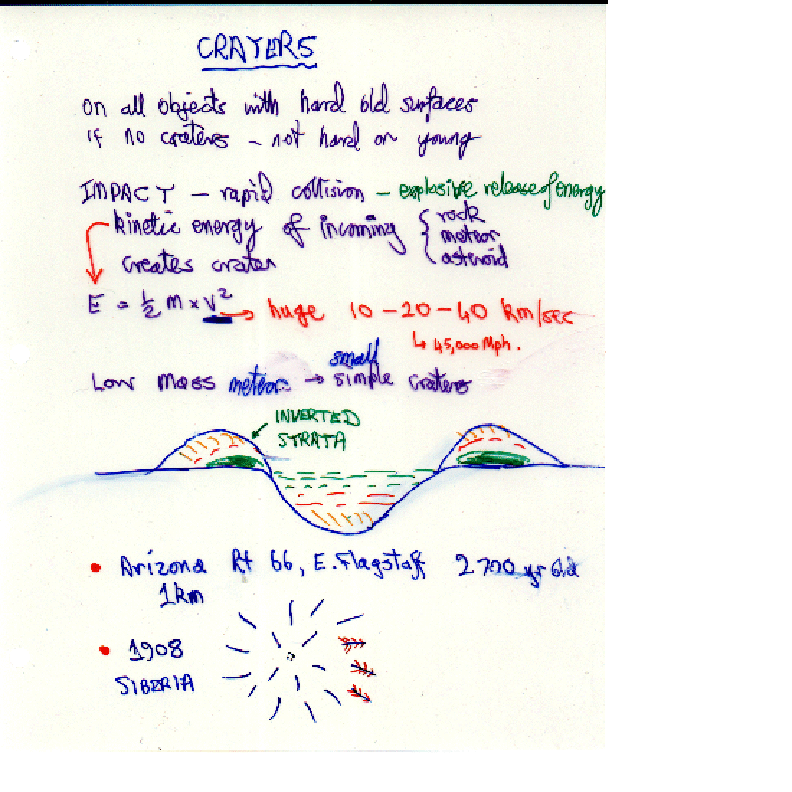 CRATERS
on all objects with hard old surfaces
if no craters - not hard or young
IMPACT - rapid collision - explosive release of energy
kinetic energy of incoming { rock
meteor
asteroid
creates crater
E = 1/2 m x v² → huge 10 - 20 - 40 km/sec
↳ 45,000 Mph.
small
Low mass meteors → simple craters
INVERTED
STRATA
• Arizona Rt 66, E. Flagstaff 2700 yr old
1km
• 1908
SIBERIA